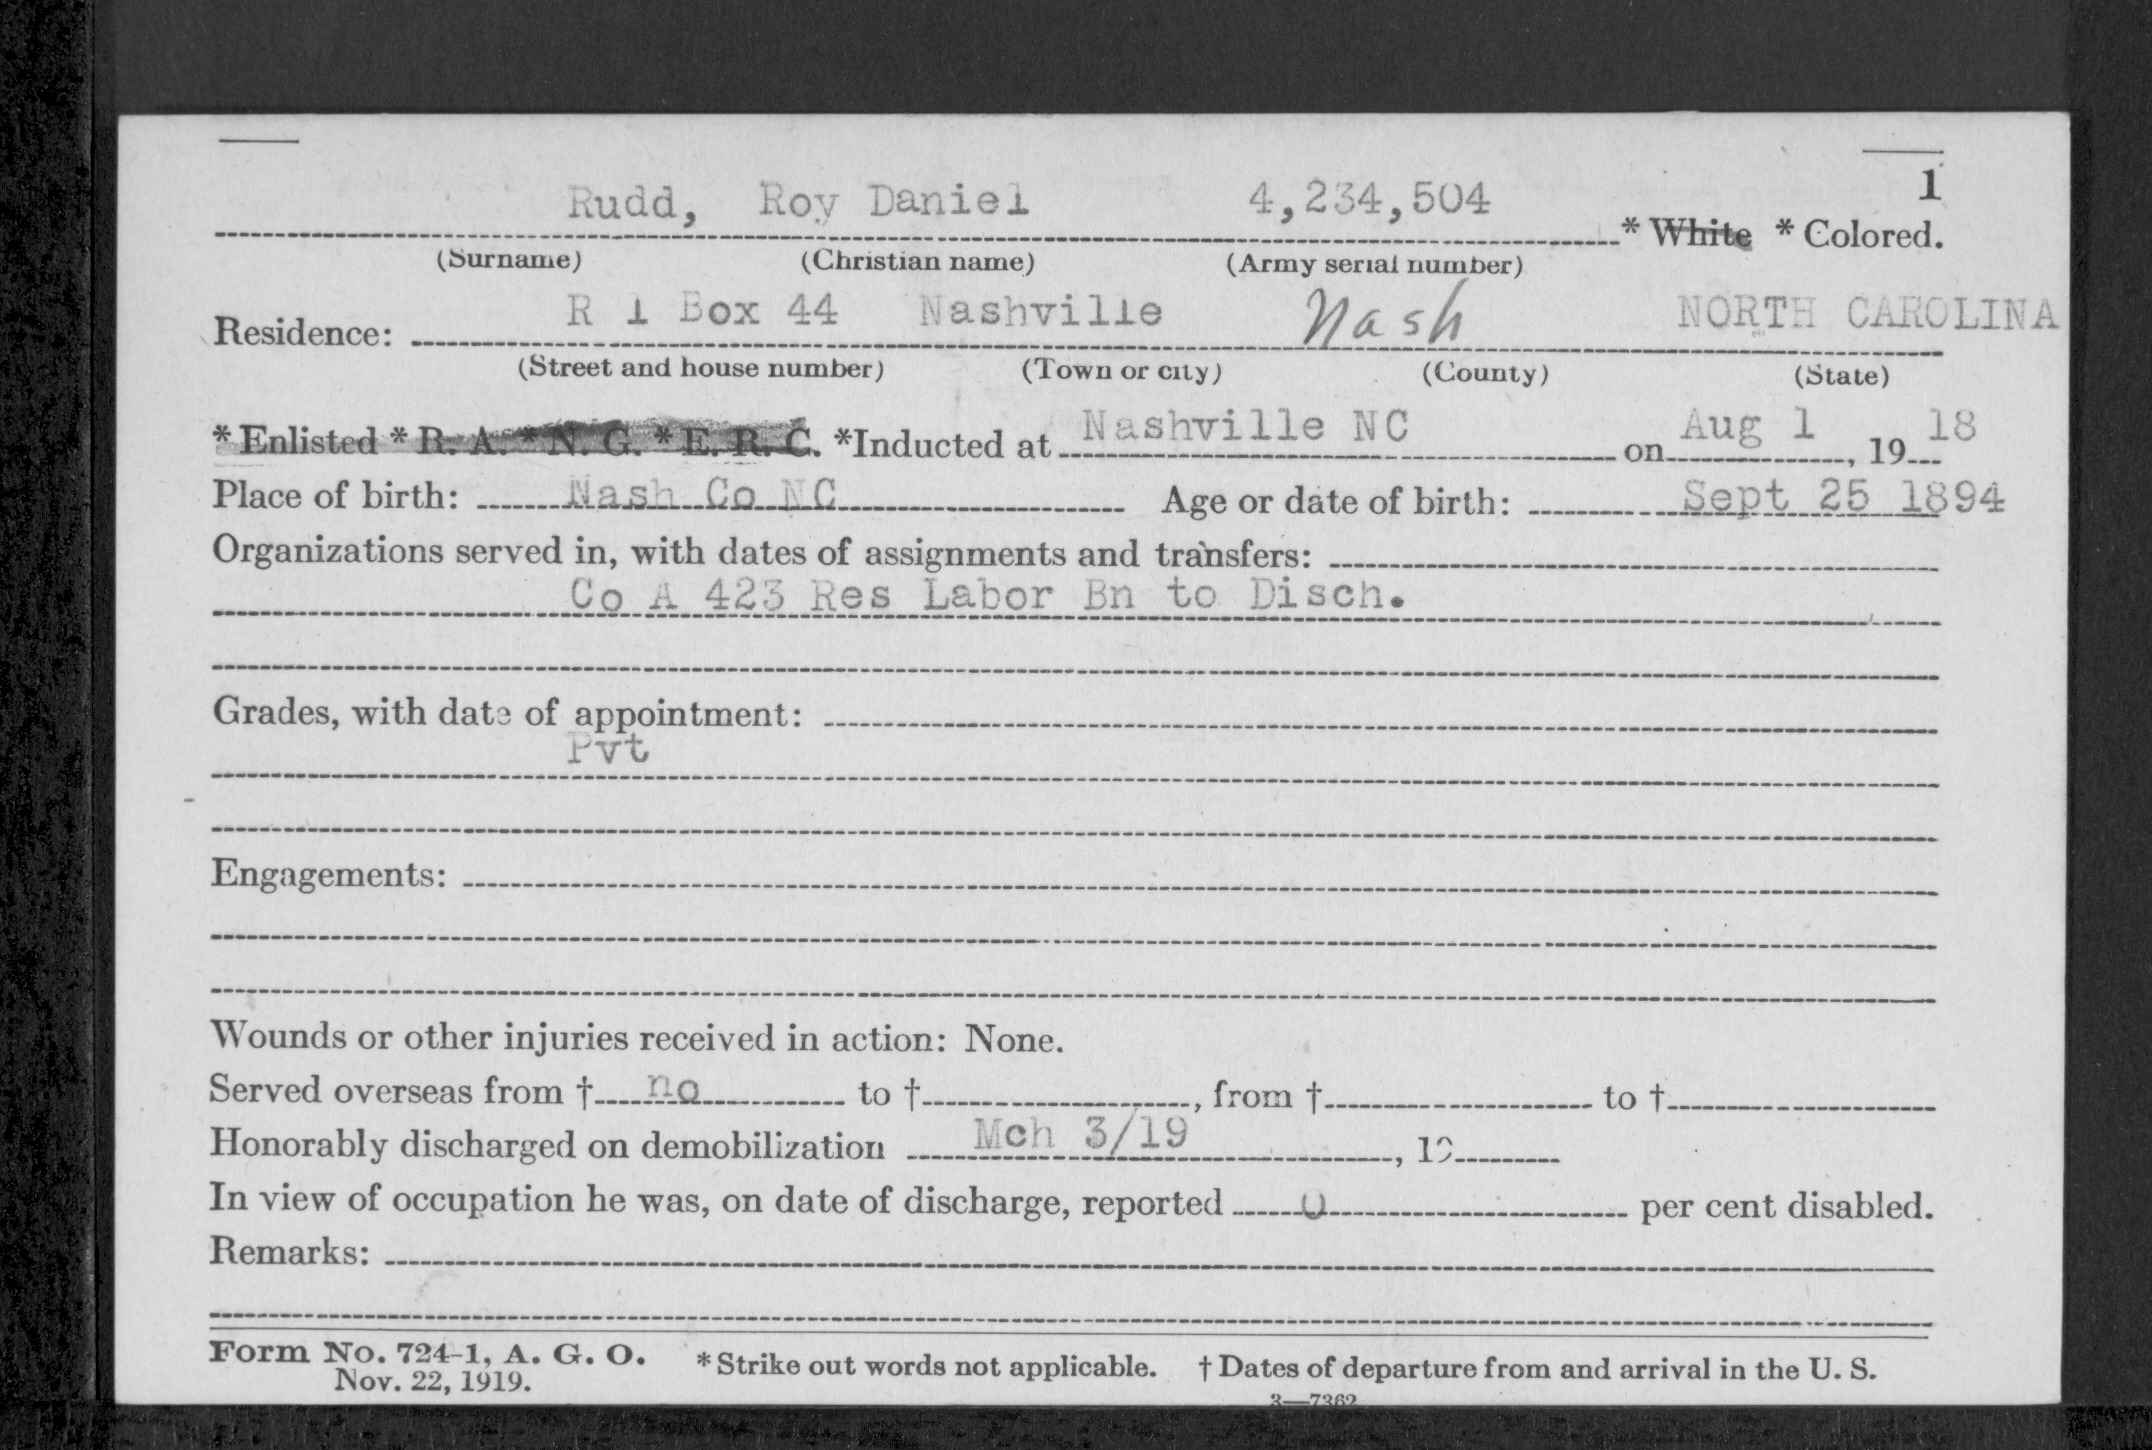 1
Rudd, Roy Daniel 4,234,504 * White * Colored.
(Surname) (Christian name) (Army serial number)
Residence: R 1 Box 44 Nashville Nash NORTH CAROLINA
(Street and house number) (Town or city) (County) (State)
* Enlisted * R. A. * N. G. * E. R. C. *Inducted at Nashville NC on Aug 1, 19 18
Place of birth: Nash Co NC Age or date of birth: Sept 25 1894
Organizations served in, with dates of assignments and transfers:
Co A 423 Res Labor Bn to Disch.
Grades, with date of appointment:
Pvt
Engagements:
Wounds or other injuries received in action: None.
Served overseas from † no to †, from † to †
Honorably discharged on demobilization Mch 3/19, 19
In view of occupation he was, on date of discharge, reported 0 per cent disabled.
Remarks:
Form No. 724-1, A. G. O. * Strike out words not applicable. † Dates of departure from and arrival in the U. S.
Nov. 22, 1919.
3—7362